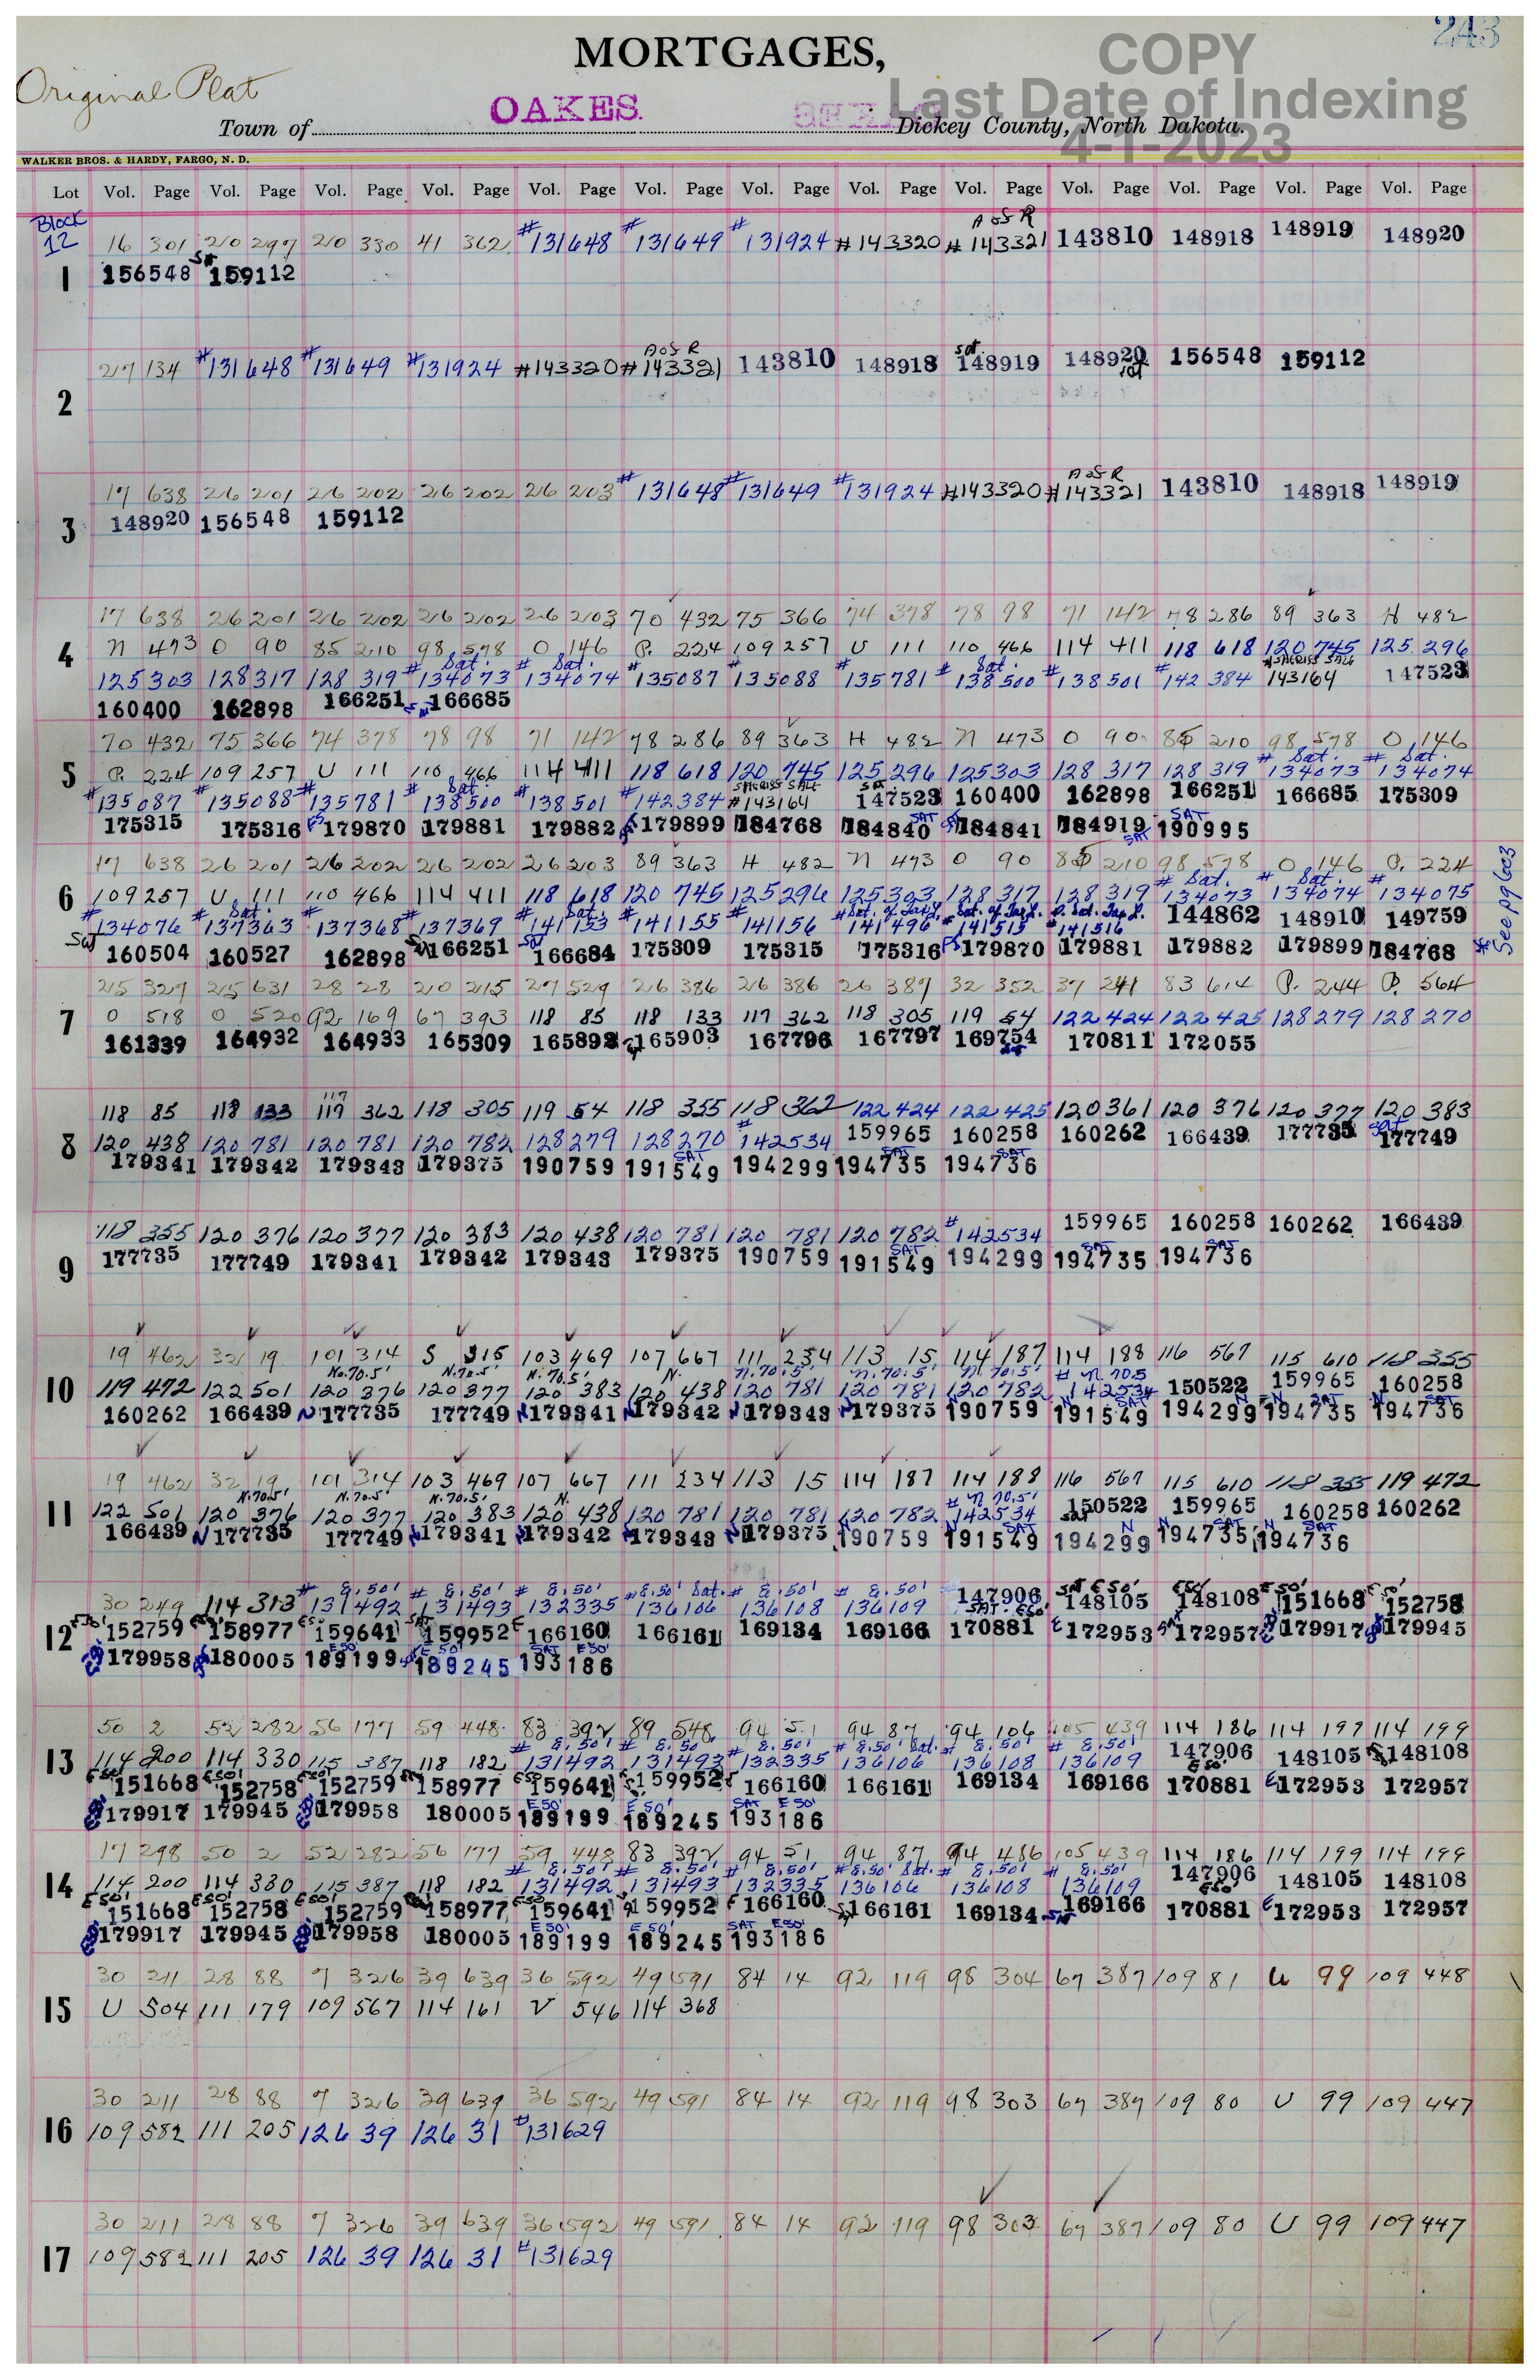 243
MORTGAGES,
COPY
Original Plat
OAKES.
Last Date of Indexing
Town of Dickey County, North Dakota.
4-1-2023
WALKER BROS. & HARDY, FARGO, N. D.
Lot Vol. Page Vol. Page Vol. Page Vol. Page Vol. Page Vol. Page Vol. Page Vol. Page Vol. Page Vol. Page Vol. Page Vol. Page Vol. Page
Block
12
A of R
16 301 20 297 20 330 41 362 #131648 #131649 #131924 #143320 #143321 143810 148918 148919 148920
1 156548 159112
A of R sat.
27 134 #131648 #131649 #131924 #143320 #143321 143810 148918 148919 148920 156548 159112
2
A of R
17 638 26 201 26 202 26 202 26 203 #131648 #131649 #131924 #143320 #143321 143810 148918 148919
3 148920 156548 159112
17 638 26 201 26 202 26 202 26 203 70 432 75 366 74 378 78 98 71 142 78 286 89 363 H 482
4 N 473 O 90 85 210 98 578 O 146 P. 224 109 257 U 111 110 466 114 411 118 618 120 745 125 296
Sat. Sat. Sat. SHERIFF SALE
125 303 128 317 128 319 #134073 #134074 #135087 #135088 #135781 #138500 #138501 #142384 #143164 147523
160400 162898 166251 166685
70 432 75 366 74 378 78 98 71 142 78 286 89 363 H 482 N 473 O 90 85 210 98 578 O 146
5 P. 224 109 257 U 111 110 466 114 411 118 618 120 745 125 296 125 303 128 317 128 319 #134073 Sat. #134074 Sat.
#135087 #135088 #135781 #138500 Sat. #138501 #142384 #143164 SHERIFF SALE 147523 160400 162898 166251 166685 175309
175315 175316 179870 179881 179882 179899 184768 184840 SAT 184841 184919 SAT 190995 SAT
17 638 26 201 26 202 26 202 26 203 89 363 H 482 N 473 O 90 85 210 98 578 O 146 P. 224
6 109 257 U 111 110 466 114 411 118 618 120 745 125 296 125 303 128 317 128 319 #134073 Sat. #134074 Sat. #134075
#134076 #137363 Sat. #137368 #137369 #141153 Sat. #141155 #141156 #141496 #141515 #141516 144862 148910 149759
Sat 160504 160527 162898 166251 166684 175309 175315 175316 179870 179881 179882 179899 184768
* See pg 603
25 327 25 631 28 28 20 215 27 529 26 386 26 386 26 387 32 352 37 241 83 614 P. 244 P. 564
7 O 518 O 520 92 169 67 393 118 85 118 133 117 362 118 305 119 54 122 424 122 425 128 279 128 270
161339 164932 164933 165309 165892 165903 167796 167797 169754 170811 172055
118 85 118 133 117 362 118 305 119 54 118 355 118 362 122 424 122 425 120 361 120 376 120 377 120 383
8 120 438 120 781 120 781 120 782 128 279 128 270 #142534 159965 160258 160262 166439 177735 177749
179341 179342 179343 179375 190759 191549 SAT 194299 194735 SAT 194736 SAT
118 355 120 376 120 377 120 383 120 438 120 781 120 781 120 782 #142534 159965 160258 160262 166439
9 177735 177749 179341 179342 179343 179375 190759 191549 SAT 194299 194735 SAT 194736 SAT
19 462 32 19 101 314 S 315 103 469 107 667 111 234 113 15 114 187 114 188 116 567 115 610 118 355
No. 70.5' N. 70.5' N. 70.5' N. N. 70.5' N. 70.5' N. 70.5' N. 70.5
10 119 472 122 501 120 376 120 377 120 383 120 438 120 781 120 781 120 782 #142534 150522 159965 160258
160262 166439 N 177735 177749 N 179341 N 179342 N 179343 N 179375 190759 N 191549 SAT 194299 N 194735 SAT N 194736 SAT
19 462 32 19 101 314 103 469 107 667 111 234 113 15 114 187 114 188 116 567 115 610 118 355 119 472
N. 70.5' N. 70.5' N. 70.5' N. # N. 70.5'
11 122 501 120 376 120 377 120 383 120 438 120 781 120 781 120 782 142534 150522 159965 160258 160262
166439 N 177735 177749 N 179341 N 179342 N 179343 N 179375 N 190759 N 191549 SAT 194299 N 194735 SAT N 194736 SAT
# E. 50' # E. 50' # E. 50' # E. 50' Sat. # E. 50' # E. 50' SAT E 50' E 50' E 50' E 50'
30 249 114 313 131492 131493 132335 136106 136108 136109 147906 148105 148108 151668 152758
12 152759 158977 159641 159952 166160 166161 169134 169166 170881 172953 172957 179917 179945
179958 180005 189199 E 50' 189245 E 50' 193186 SAT E 50'
50 2 52 282 56 177 59 448 83 392 89 548 94 51 94 87 94 106 105 439 114 186 114 197 114 199
# E. 50' # E. 50' # E. 50' # E. 50' Sat. # E. 50' # E. 50'
13 114 200 114 330 115 387 118 182 131492 131493 132335 136106 136108 136109 147906 148105 148108
151668 152758 152759 158977 159641 159952 166160 166161 169134 169166 170881 172953 172957
179917 179945 179958 180005 189199 E 50' 189245 E 50' 193186 SAT E 50'
17 298 50 2 52 282 56 177 59 448 83 392 94 51 94 87 94 486 105 439 114 186 114 199 114 199
# E. 50' # E. 50' # E. 50' # E. 50' Sat. # E. 50' # E. 50'
14 114 200 114 330 115 387 118 182 131492 131493 132335 136106 136108 136109 147906 148105 148108
151668 152758 152759 158977 159641 159952 166160 166161 169134 169166 170881 172953 172957
179917 179945 179958 180005 189199 E 50' 189245 E 50' 193186 SAT E 50'
30 211 28 88 7 326 39 639 36 592 49 591 84 14 92 119 98 304 67 387 109 81 U 99 109 448
15 U 504 111 179 109 567 114 161 V 546 114 368
30 211 28 88 7 326 39 639 36 592 49 591 84 14 92 119 98 303 67 387 109 80 U 99 109 447
16 109 582 111 205 126 39 126 31 #131629
30 211 28 88 7 326 39 639 36 592 49 591 84 14 92 119 98 303 67 387 109 80 U 99 109 447
17 109 582 111 205 126 39 126 31 #131629